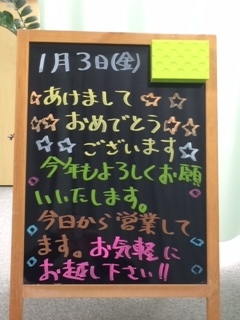 1月3日(金)
☆あけまして☆☆
☆☆おめでとう☆☆
☆☆ございます☆
今年もよろしくお願
いいたします。
今日から営業して
ます。お気軽に
お越し下さい!!